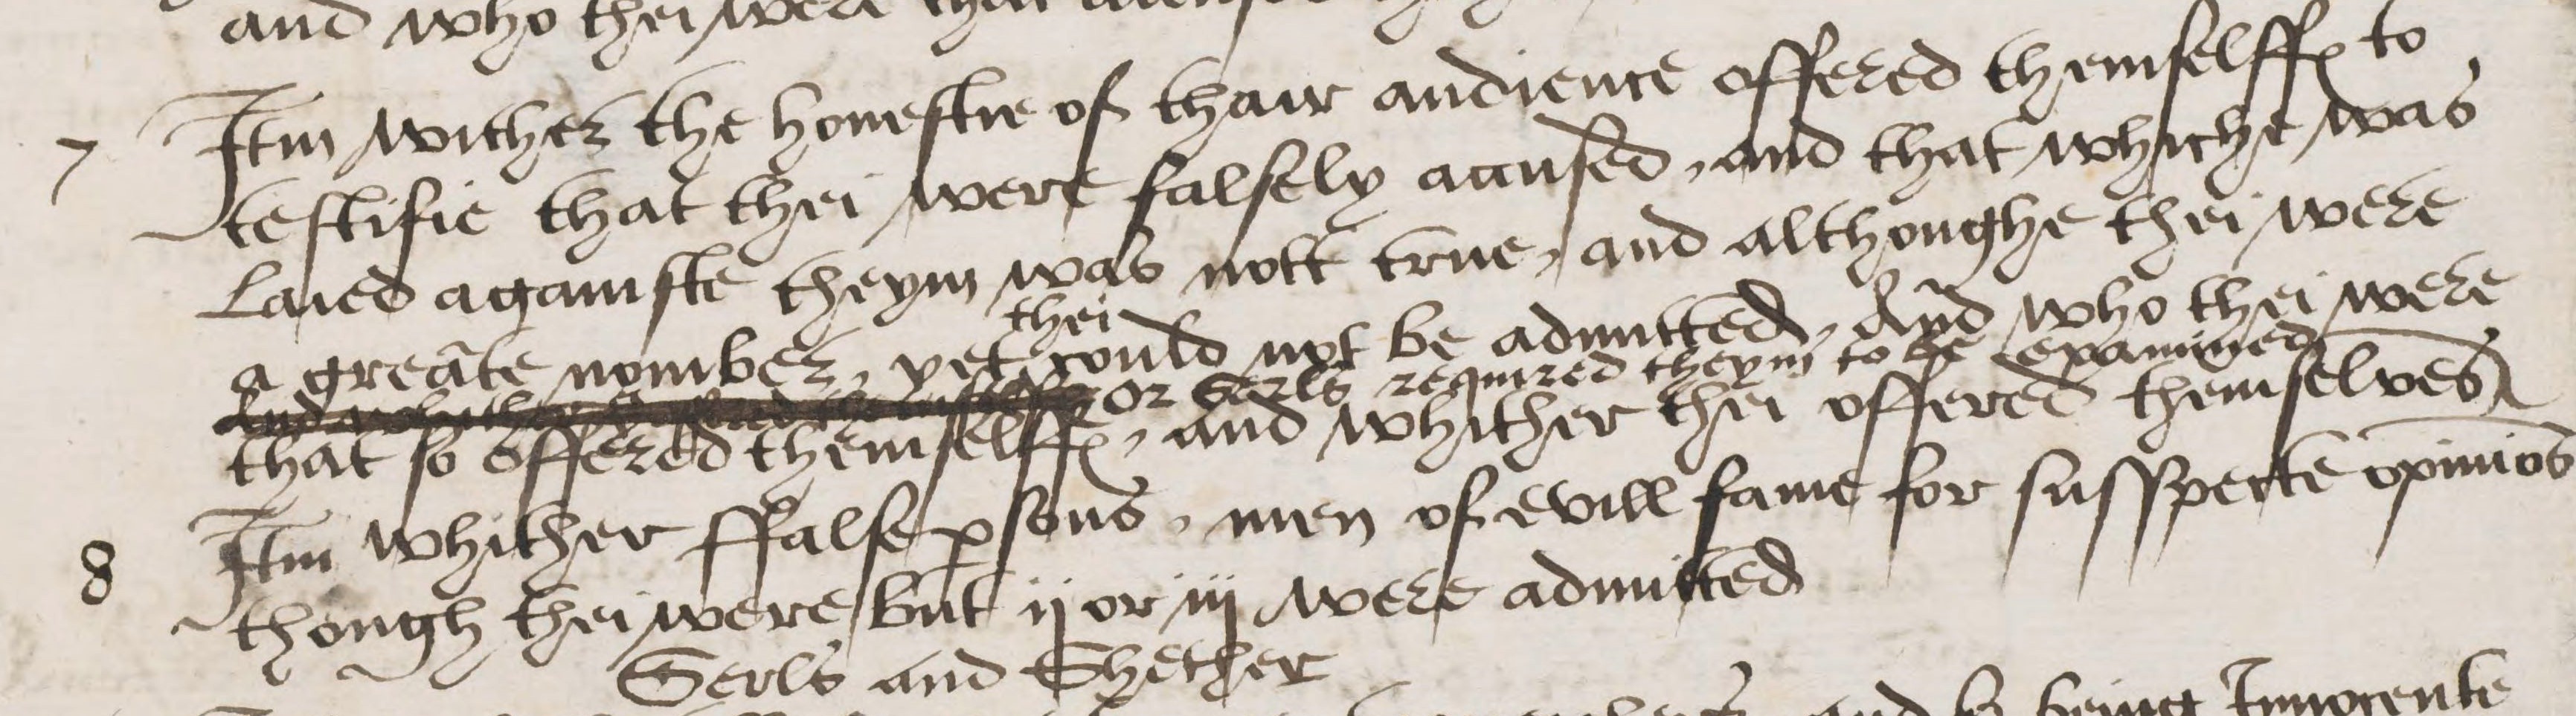 and who thei were that
7 Itm wither the honestie of thair audience offered themselff to
testifie that thei were falsely accused, and that whiche was
laied againste theym was nott true, and althoughe thei were
a greate nomber, yet thei could not be admitted, And who thei were
or Serls required theym to be examined
that so offered themselff, and whither thei offered themselves
8 Itm whither ffalse psons, men of evill fame for suspecte opinios
though thei were but ij or iij were admitted
Serls and Shether
and being Innocente